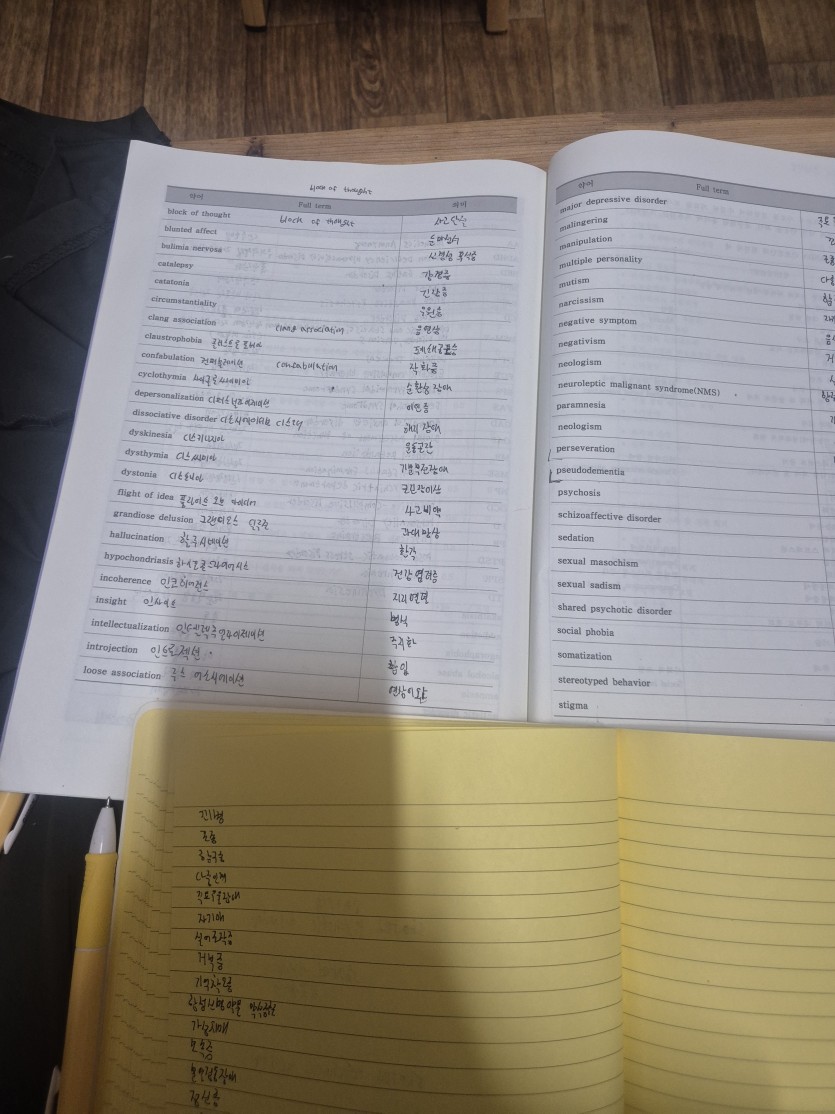 block of thought
약어 Full term 의미
block of thought block of thought 사고단절
blunted affect
bulimia nervosa 신경성 폭식증
catalepsy 강경증
catatonia 긴장증
circumstantiality 우원증
clang association clang association 음연상
claustrophobia 클러스트로포비아 폐쇄공포증
confabulation 컨퍼뷸레이션 작화증
cyclothymia 순환성 장애
depersonalization 이인증
dissociative disorder 해리 장애
dyskinesia 디스키니지아 운동곤란
dysthymia 디스씨미아 기분부전장애
dystonia 디스토니아 근긴장이상
flight of idea 플라이트 오브 아이디어 사고비약
grandiose delusion 그랜디오스 과대망상
hallucination 할루시네이션 환각
hypochondriasis 건강염려증
incoherence 인코히어런스 지리멸렬
insight 인사이트 병식
intellectualization 주지화
introjection 인트로젝션 함입
loose association 루스 어소시에이션 연상이완
약어 Full term
major depressive disorder
malingering
manipulation
multiple personality
mutism
narcissism
negative symptom
negativism
neologism
neuroleptic malignant syndrome(NMS)
paramnesia
neologism
perseveration
pseudodementia
psychosis
schizoaffective disorder
sedation
sexual masochism
sexual sadism
shared psychotic disorder
social phobia
somatization
stereotyped behavior
stigma
꾀병
조종
다중인격
주요우울장애
자기애
거부증
기억착오
가성치매
보속증